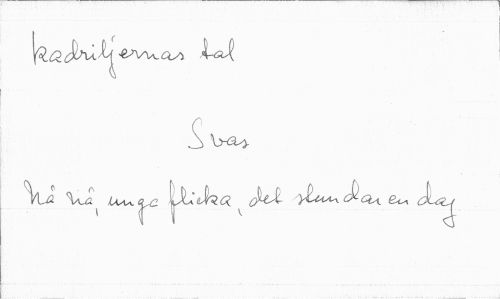 kadriljernas tal
Svas
Nå nå, unga flicka, det stundar en dag